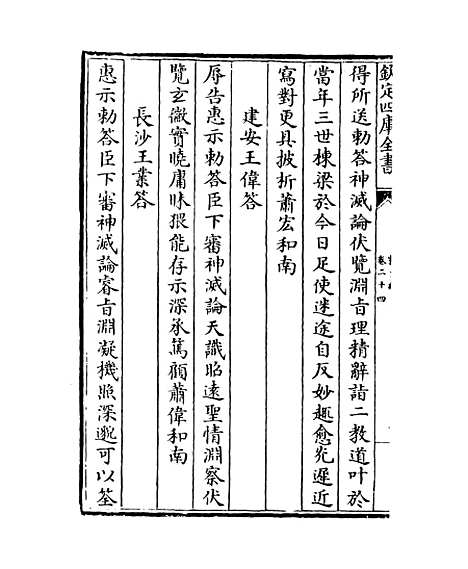 欽定四庫全書
卷二十四
得所送勅答神滅論伏覽淵旨理精辭詣二教道叶於
當年三世棟梁於今日足使迷途自反妙趣愈光遲近
寫對更具披析蕭宏和南
建安王偉答
辱告惠示勅答臣下審神滅論天識昭遠聖情淵察伏
覽玄微實曉庸昧猥能存示深承篤顧蕭偉和南
長沙王業答
惠示勅答臣下審神滅論睿旨淵凝機照深邈可以筌